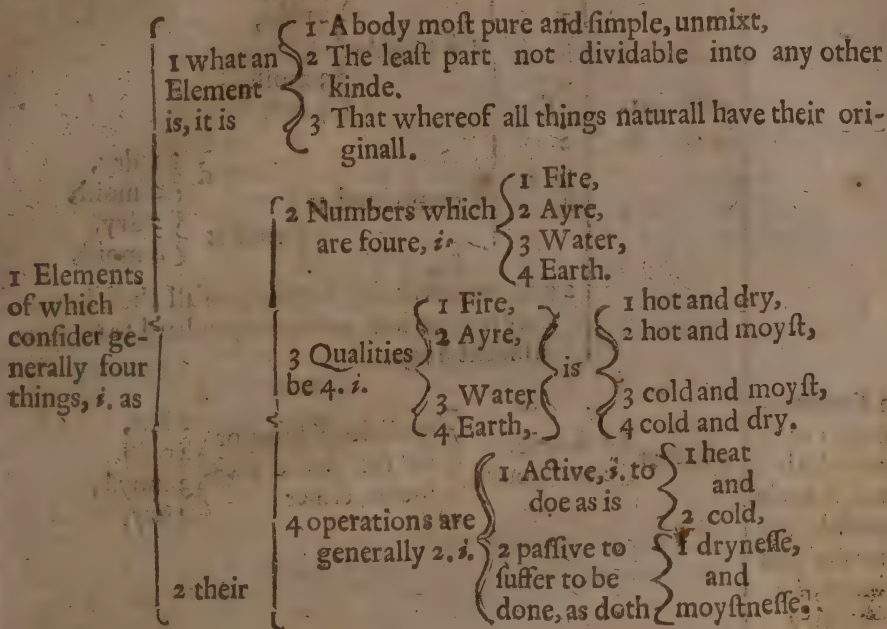 1 Elements
of which
conſider ge-
nerally four
things, i. as
1 what an
Element
is, it is
1 A body moſt pure and ſimple, unmixt,
2 The leaſt part not dividable into any other
kinde.
3 That whereof all things naturall have their ori-
ginall.
2 their
2 Numbers which
are foure, i.
1 Fire,
2 Ayre,
3 Water,
4 Earth.
3 Qualities
be 4. i.
1 Fire,
2 Ayre,
3 Water
4 Earth,
is
1 hot and dry,
2 hot and moyſt,
3 cold and moyſt,
4 cold and dry.
4 operations are
generally 2. i.
1 Active, i. to
doe as is
1 heat
and
2 cold,
2 paſſive to
ſuffer to be
done, as doth
1 dryneſſe,
and
moyſtneſſe.